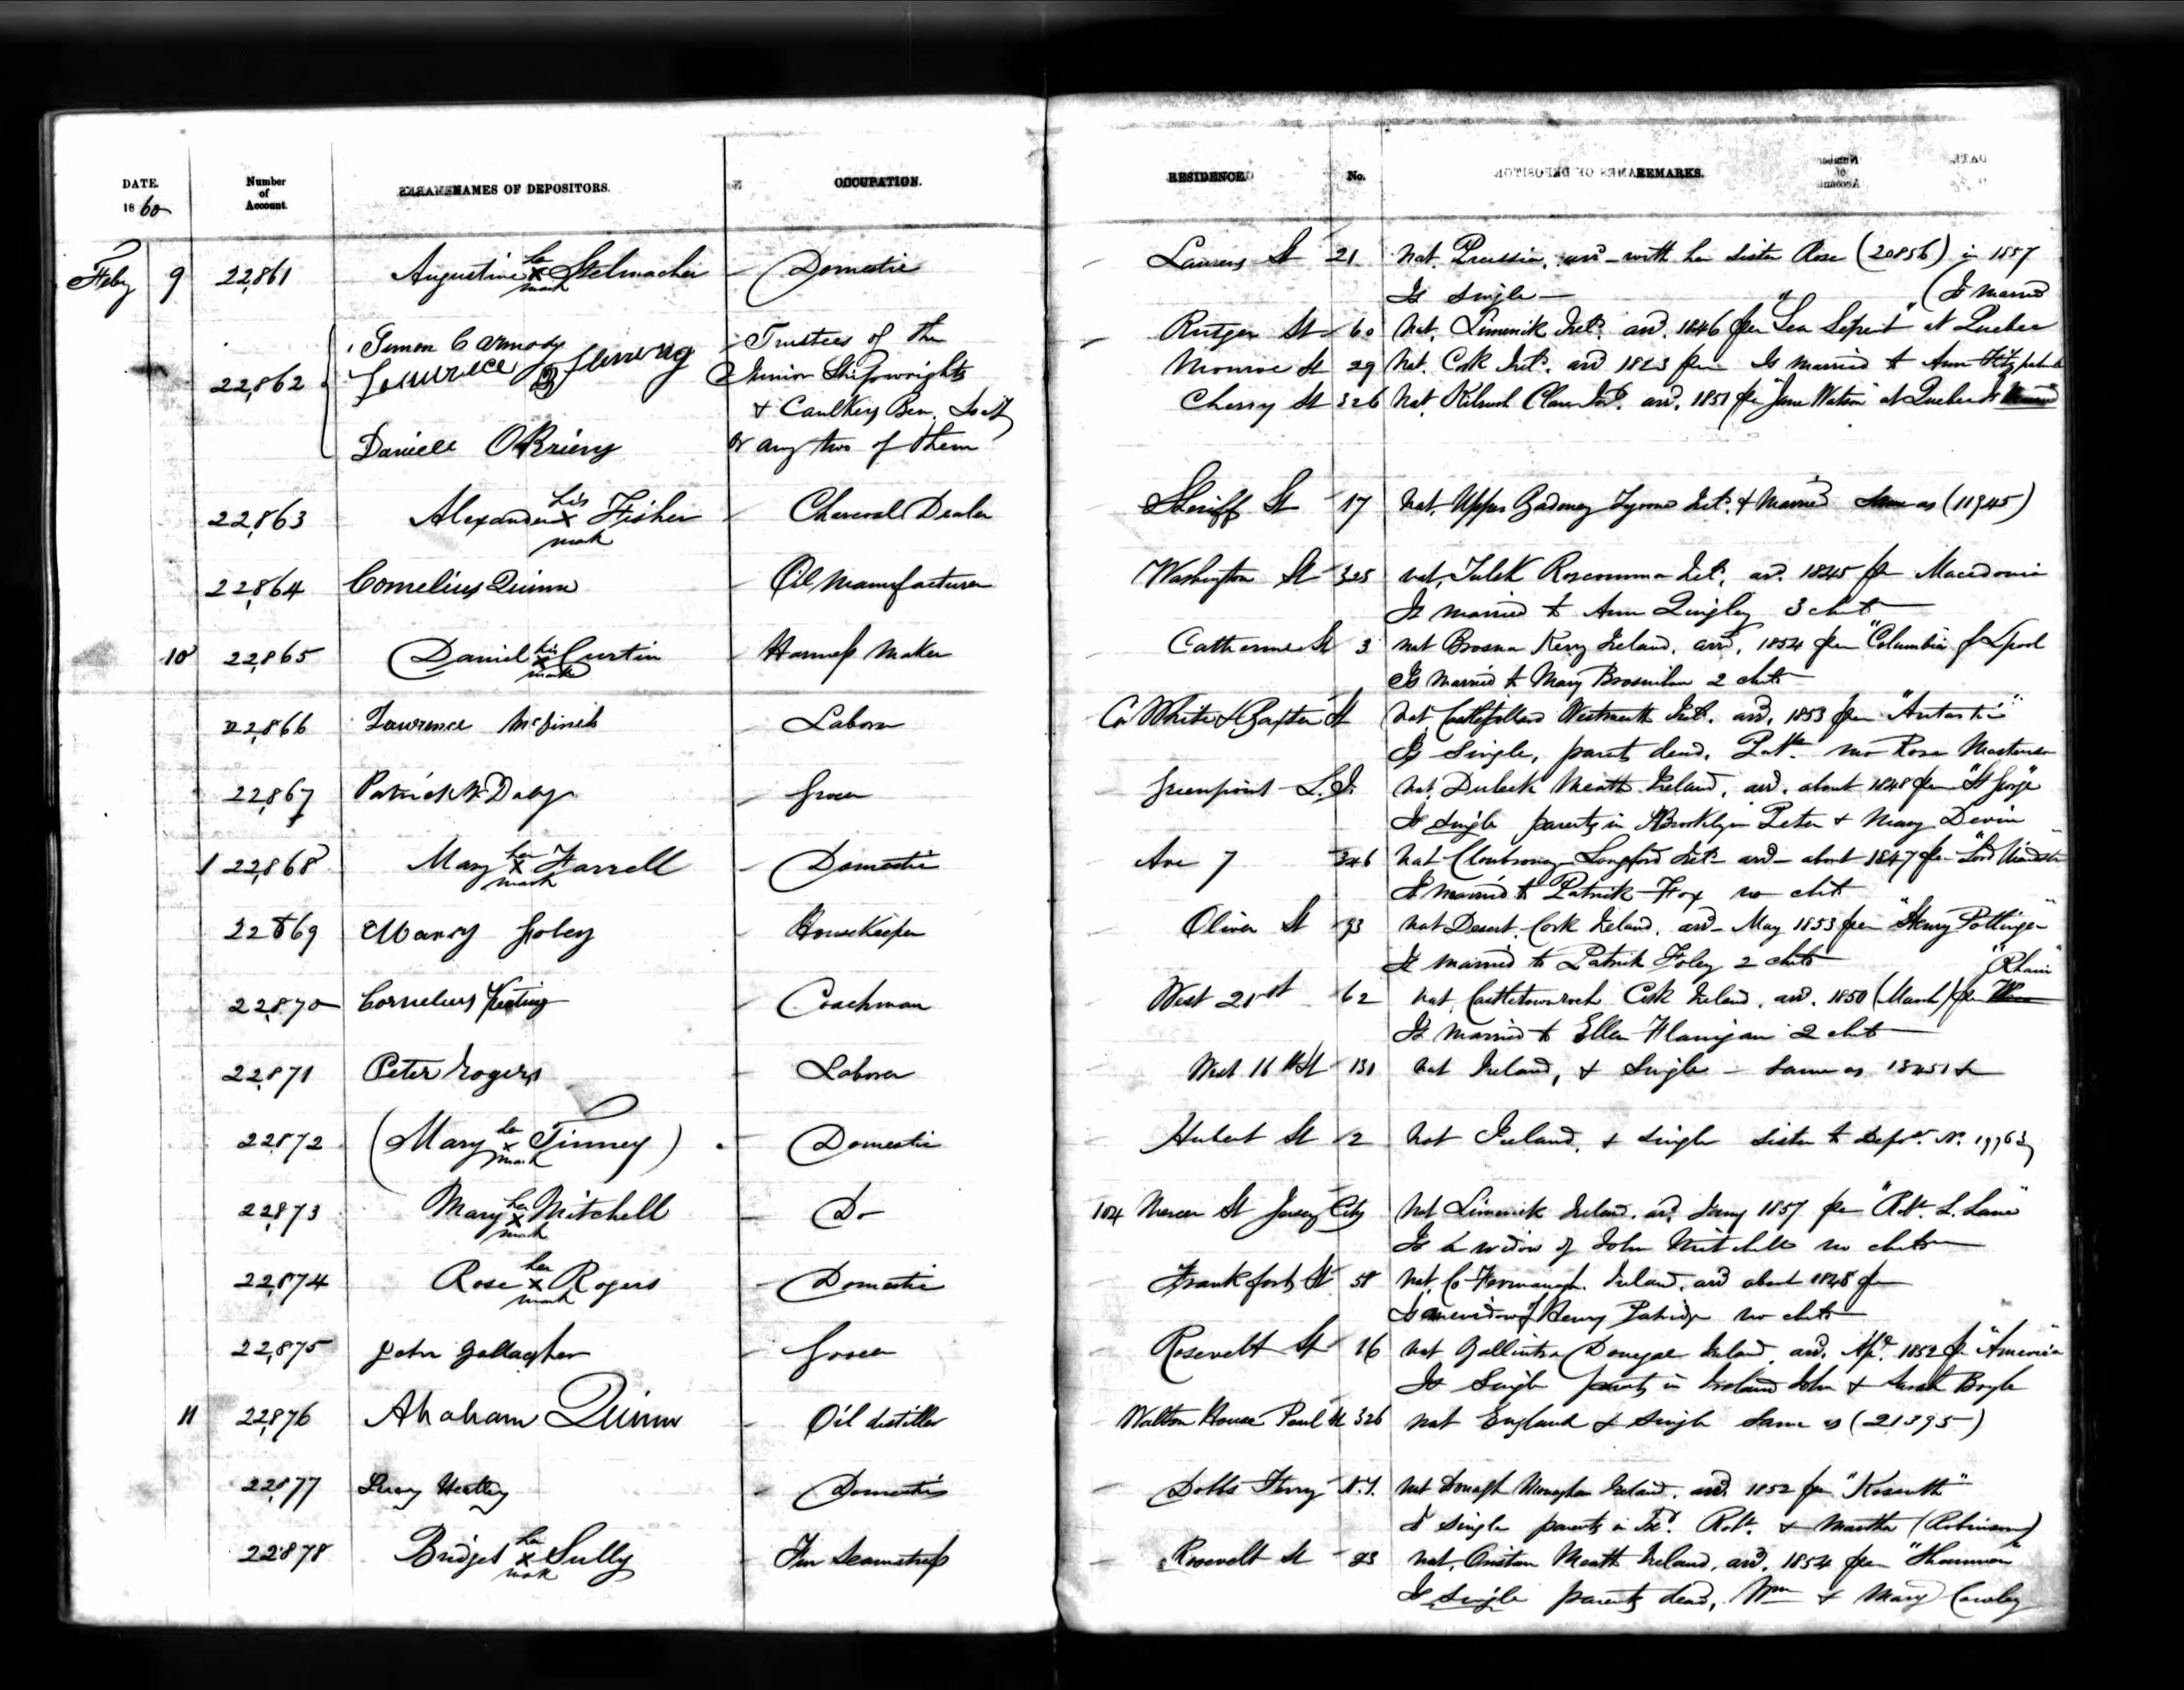 DATE. Number of Account. NAMES OF DEPOSITORS. OCCUPATION. RESIDENCE. No. REMARKS.
1860
Feby 9 22,861 Augustine her x mark Stelmacher Domestic Laurens St 21 nat. Prussia, arrd with her sister Rose (20856) in 1857
Is Single (Is married
22,862 Simon Carmody Trustees of the Rutger St 60 nat. Limerick Ireld. arrd. 1846 per "Sea" at Quebec
Lawrence Fleming Junior Shipwrights Monroe St 29 nat. Cork Ireld. arrd 1823 per Is married to Ann Fitzpatrick
& Caulkers Ben. Socty Cherry St 326 nat. Kilrush Clare Ird. arrd. 1851 per "Jane Watson" at Quebec Is
Daniell OBrieny or any two of them
22,863 Alexander his x mark Fisher Charcoal Dealer Sheriff St 17 nat. Upper Badoney Tyrone Ireld. & Married Same as (11945)
22,864 Cornelius Quinn Oil Manufacturer Washington St 325 nat. Tulsk Roscommon Ireld. arrd. 1845 per Macedonia
Is married to Ann Quigley 3 child
10 22,865 Daniel his x mark Curtin Harness Maker Catherine St 3 nat Brosna Kerry Ireland. arrd. 1854 per "Columbia" f Lpool
Is married to Mary Brosnihan 2 child
22,866 Lawrence Laborer Cor White & Baxter St nat. Castlepollard Westmeath Ireld. arrd. 1853 per
Is Single, parents dead, Patk. mo Rose
22,867 Patrick Grocer Greenpoint L.I. nat. Duleek Meath Ireland. arrd. about 1848 per "St George"
Is Single parents in Brooklyn Peter & Mary Devin
22,868 Mary her x mark Farrell Domestic Ave 7 346 nat Longford Ireld arrd about 1847 per
Is married to Patrick Fox no child
22869 Mary Foley HouseKeeper Oliver St 93 nat Desert. Cork Ireland. arrd May 1853 per "Henry Pottinger"
Is married to Patrick Foley 2 child
22,870 Cornelius Keating Coachman West 21st 62 nat. Castletownroch Cork Ireland. arrd. 1850 (March) per "Rhein"
Is married to Ellen Flanigan 2 child
22,871 Peter Rogers Laborer West 16th St 131 nat Ireland, & Single - Same as 13451
22,872 (Mary her x mark Tinney) Domestic Hubert St 2 nat Ireland. & Single Sister to Depor. No. 19963
22,873 Mary her x mark Mitchell Do 104 Mercer St Jersey City nat Limerick Ireland. arrd. Jany 1857 per "Robt. L. Lane"
Is a widow of John Mitchell no child
22,874 Rose her x mark Rogers Domestic Frankfort St 58 nat. Co Fermanagh. Ireland. arrd about 1848 per
Is a widow of Henry no child
22,875 John Gallagher Grocer Rosevelt St 16 nat Donegal Ireland. arrd. Apl. 1852 per "America"
Is Single parents in Ireland John & Sarah Boyle
11 22,876 Abraham Quinn Oil distiller Walton House Pearl St 326 nat England & Single Same as (21395)
22,877 Domestic Dobbs Ferry N.Y. nat Donagh Monaghan Ireland. arrd. 1852 per "Kossuth"
Is single parents in Ird. Robt. & Martha (Robinson)
22878 Bridget her x mark Sully Fur Seamstress Roosevelt St 23 nat. Meath Ireland. arrd. 1854 per "Shannon"
Is Single parents dead, Wm & Mary